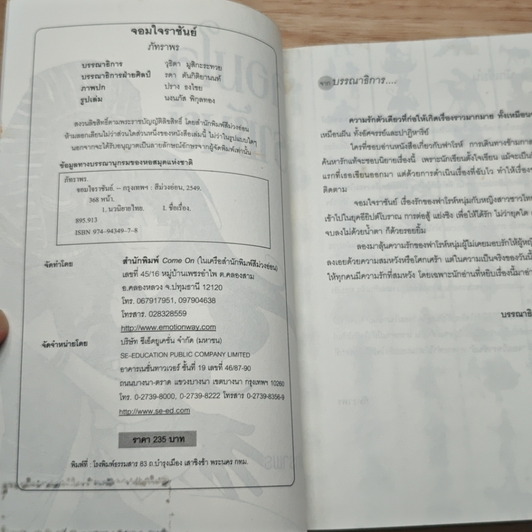 จอมใจราชันย์
ภัทราพร
บรรณาธิการ วุริตา มูสิกะระทวย
บรรณาธิการฝ่ายศิลป์ รตา ตันกิติยานนท์
ภาพปก ปราง ธงไชย
รูปเล่ม นงนภัส พิกุลทอง
สงวนลิขสิทธิ์ตามพระราชบัญญัติลิขสิทธิ์ โดยสำนักพิมพ์สีม่วงอ่อน
ห้ามลอกเลียนไม่ว่าส่วนใดส่วนหนึ่งของหนังสือเล่มนี้ ไม่ว่าในรูปแบบใดๆ
นอกจากจะได้รับอนุญาตเป็นลายลักษณ์อักษรจากผู้จัดพิมพ์เท่านั้น
ข้อมูลทางบรรณานุกรมของหอสมุดแห่งชาติ
ภัทราพร.
จอมใจราชันย์. -- กรุงเทพฯ : สีม่วงอ่อน, 2549.
368 หน้า.
1. นวนิยายไทย. I. ชื่อเรื่อง.
895.913
ISBN 974-94349-7-8
จัดทำโดย สำนักพิมพ์ Come On (ในเครือสำนักพิมพ์สีม่วงอ่อน)
เลขที่ 45/16 หมู่บ้านเพชรอำไพ ต.คลองสาม
อ.คลองหลวง จ.ปทุมธานี 12120
โทร. 067917951, 097904638
โทรสาร. 028328559
http://www.emotionway.com
จัดจำหน่ายโดย บริษัท ซีเอ็ดยูเคชั่น จำกัด (มหาชน)
SE-EDUCATION PUBLIC COMPANY LIMITED
อาคารเนชั่นทาวเวอร์ ชั้นที่ 19 เลขที่ 46/87-90
ถนนบางนา-ตราด แขวงบางนา เขตบางนา กรุงเทพฯ 10260
โทร. 0-2739-8000, 0-2739-8222 โทรสาร 0-2739-8356-9
http://www.se-ed.com
ราคา 235 บาท
พิมพ์ที่ : โรงพิมพ์ธรรมสาร 83 ถ.บำรุงเมือง เสาชิงช้า พระนคร กทม.
บรรณาธิการ....
ความรักตัวเดียวที่ก่อให้เกิดเรื่องราวมากมาย ทั้งเหมือน
เหมือนฝัน ทั้งอัศจรรย์และปาฏิหาริย์
ใครที่ชอบอ่านหนังสือเกี่ยวกับฟาโรห์ การเดินทางข้าม
ค้นหารักแท้จะชอบนิยายเรื่องนี้ เพราะนักเขียนตั้งใจเขียน แม้จะเป็น
แรกที่เธอเขียนออกมา แต่ด้วยการดำเนินเรื่องที่ฉับไว ทำให้เรื่อง
ติดตาม
จอมใจราชันย์ เรื่องรักของฟาโรห์หนุ่มกับหญิงสาวชาวไทย
เข้าไปในยุคอียิปต์โบราณ การต่อสู้ แย่งชิง เพื่อให้ได้รัก ไม่ว่ายุคใด
จบลงไม่ด้วยน้ำตา ก็ด้วยรอยยิ้ม
ลองมาลุ้นความรักของฟาโรห์หนุ่มผู้ไม่เคยมอบรักให้ผู้หญิง
ลงเอยด้วยความสมหวังหรือโศกเศร้า แต่ในความเป็นจริงของวันนี้
ให้ทุกคนมีความรักที่สมหวัง โดยเฉพาะนักอ่านที่หยิบเรื่องนี้มา
บรรณาธิ